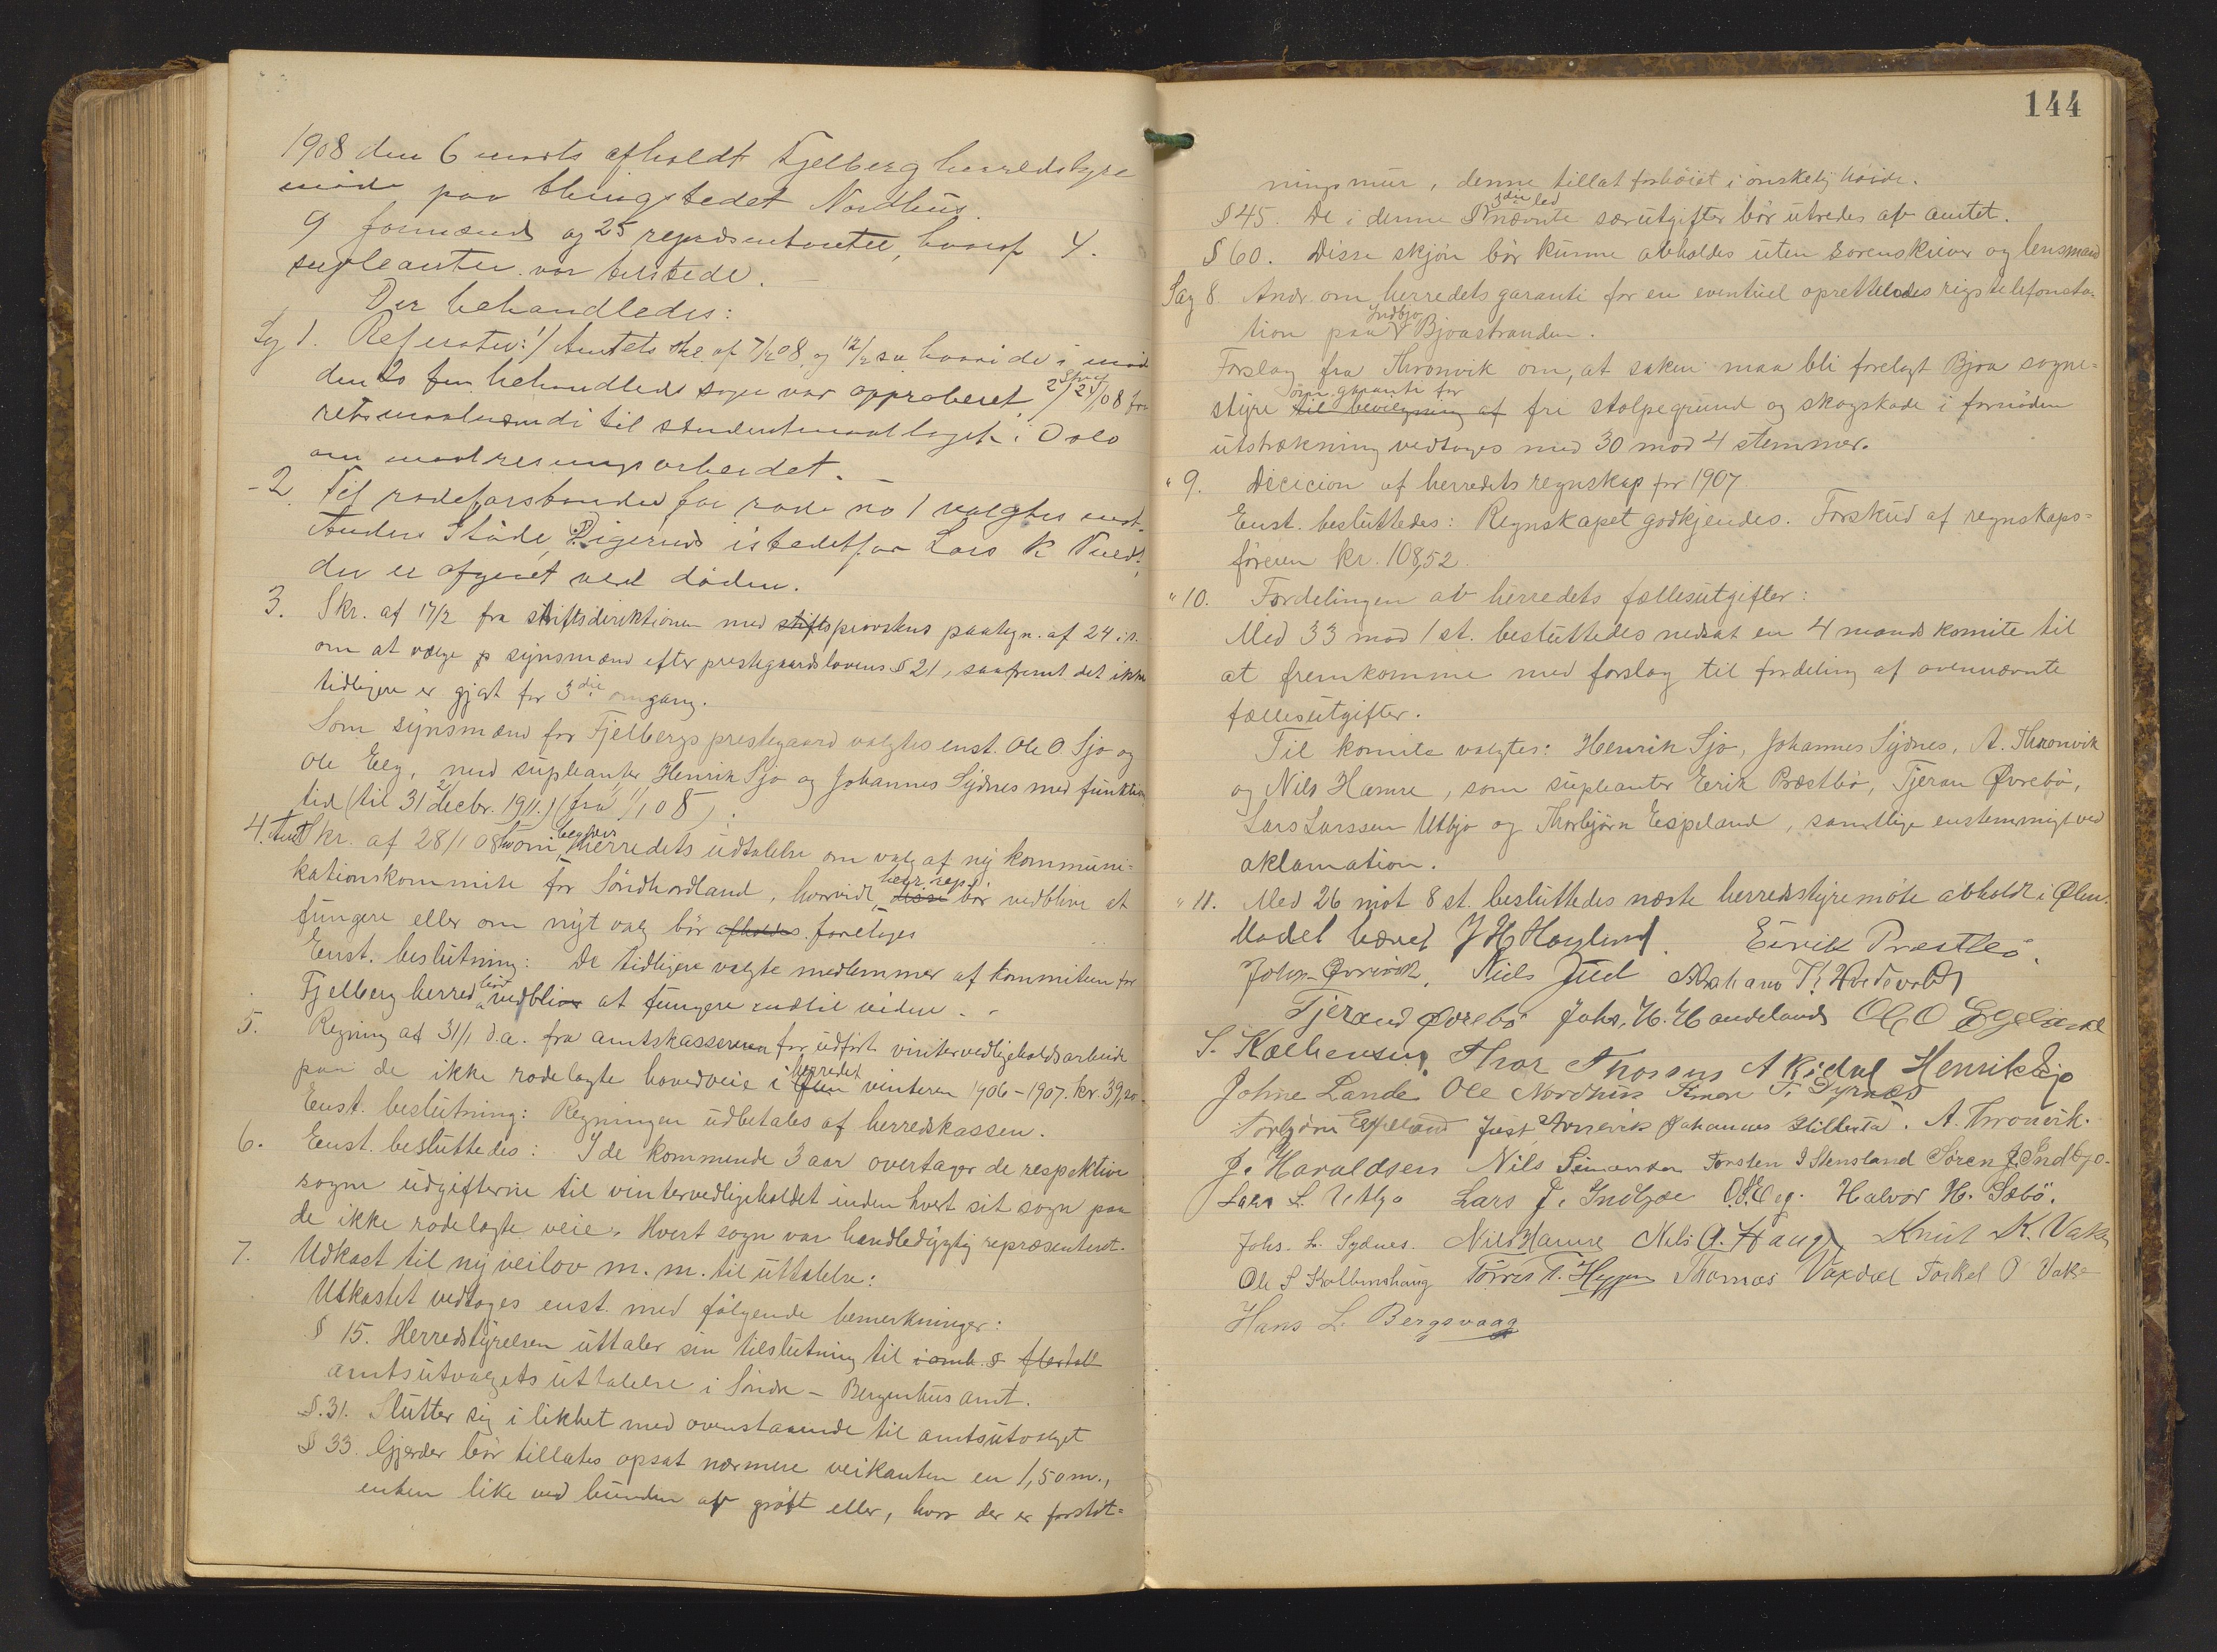 1908 den 6 marts afholdt Fjelberg herredstyre
møde paa thingstedet Nordhus.
9 formænd og 25 repræsentanter, hvoraf 4.
supleanter var tilstede.
Der behandledes:
Sag 1. Referater: 1/ Amtets skr. af 7/2 08, og 12/2 s.a. hvori de i møde
den 20 behandlede sager var approberet. 2/ Skriv 24/1 08 fra
til studentmaallaget i Oslo
om maalreisningsarbeidet.
- 2. Til rodeforstander for rode no 1 valgtes enst.
Anders Støde, istedetfor Lars K
der er afgaaet ved døden.
3. Skr. af 17/2 fra stiftsdirektionen med stiftsprovstens paategn. af 24 i s.
om at vælge synsmænd efter prestegaardslovens § 21, saafremt det ikke
tidligere er gjort for 3die omgang.
Som synsmænd for Fjelbergs prestegaard valgtes enst. Ole O Sjo og
Ole Eeg, med supleanter Henrik Sjo og Johannes Sydnes med funktions
tid (til 31 decbr. 1911.) (fra 1/1 08).
4. Amt Skr. af 28/1 08 hvori begjæres herredets udtalelse om valg af ny kommuni-
kationskommite for Søndhordland, hvorvidt herr. repr. disse bør vedblive at
fungere eller om nyt valg bør afholdes foretages
Enst. beslutning: De tidligere valgte medlemmer af kommiteen for
Fjelberg herred bør vedblive at fungere indtil videre.
5. Regning af 31/1 d.a. fra amtskasseren for udført vintervedligeholdsarbeide
paa de ikke rodelagte hovedveie i herredet Ølen vinteren 1906-1907. kr. 39,20.
Enst. beslutning: Regningen udbetales af herredskassen.
6. Enst. besluttedes: I de kommende 3 aar overtager de respektive
sogne udgifterne til vintervedligeholdet inden hvert sit sogn paa
de ikke rodelagte veie. Hvert sogn var handledygtig repræsenteret.
7. Udkast til ny veilov m. m. til uttalelse:
Utkastet vedtages enst. med følgende bemerkninger:
§ 15. Herredstyrelsen uttaler sin tilslutning til flertall
amtsutvalgets uttalelse i Søndre-Bergenhus amt.
§. 31. Slutter sig i likhet med ovenstaaende til amtsutvalget
§ 33. Gjerder bør tillates opsat nærmere veikanten en 1,50 m.,
enten like ved bunden af grøft eller, hvor der er forstøt=
144
ningsmur, denne tillat forhøiet i ønskelig høide.
§ 45. De i denne § 3die led nævnte særutgifter bør utredes av amtet.
§ 60. Disse skjøn bør kunne avholdes uten sorenskriver og lensmand
Sag 8. Andr. om herredets garanti for en eventuel oprettelsdes rigstelefonsta-
tion paa Indbjo Bjoastranden.
Forslag fra Thronvik om, at saken maa bli forelagt Bjoa sogne-
styre om garanti for til bevilgning af fri stolpegrund og skogskade i fornøden
utstrækning vedtages med 30 mod 4 stemmer.
" 9. Decicion af herredets regnskap for 1907
Enst. besluttedes: Regnskapet godkjendes. Forskud af regnskaps=
føreren kr. 108,52.
" 10. Fordelingen av herredets fællesutgifter:
Med 33 mod 1 st. besluttedes nedsat en 4 mands komite til
at fremkomme med forslag til fordeling af ovennævnte
fællesutgifter.
Til komite valgtes: Henrik Sjo, Johannes Sydnes, A. Thronvik
og Nils Hamre, som supleanter Eerik Præstbø, Tjeran Øvrebø,
Lars Larssen Utbjo og Thorbjørn Espeland, samtlige enstemmigt ved
aklamation.
" 11. Med 26 mot 8 st. besluttedes næste herredstyremøte avholdt i Ølen.
Mødet hævet J H Høylund. Eirik Præstbø.
Johs. Øvrevik. Niels Juel
Tjerand Øvrebø Johs. H. Handeland Ole O Egeland
Thor Thorsens A Kidal Henrik Sjo
Johne Lande Ole Nordhus Simon T. Dyrnes
Torbjørn Espeland Just Johannes A. Thronvik.
J. Haraldsen Nils Simonsen Torsten I Stensland Søren J. Indbjo.
Lars L. Utbjo Lars J. Indbjoe O.S. Eeg. Halvor H. Sæbø.
Johs. L. Sydnes. Nils Hamre Nils A. Hauge Knut K. Vaka
Ole S Kolbenshaug Tørres T. Heggen Thomas Vaxdal Torkel O Vake
Hans L. Bergsvaag